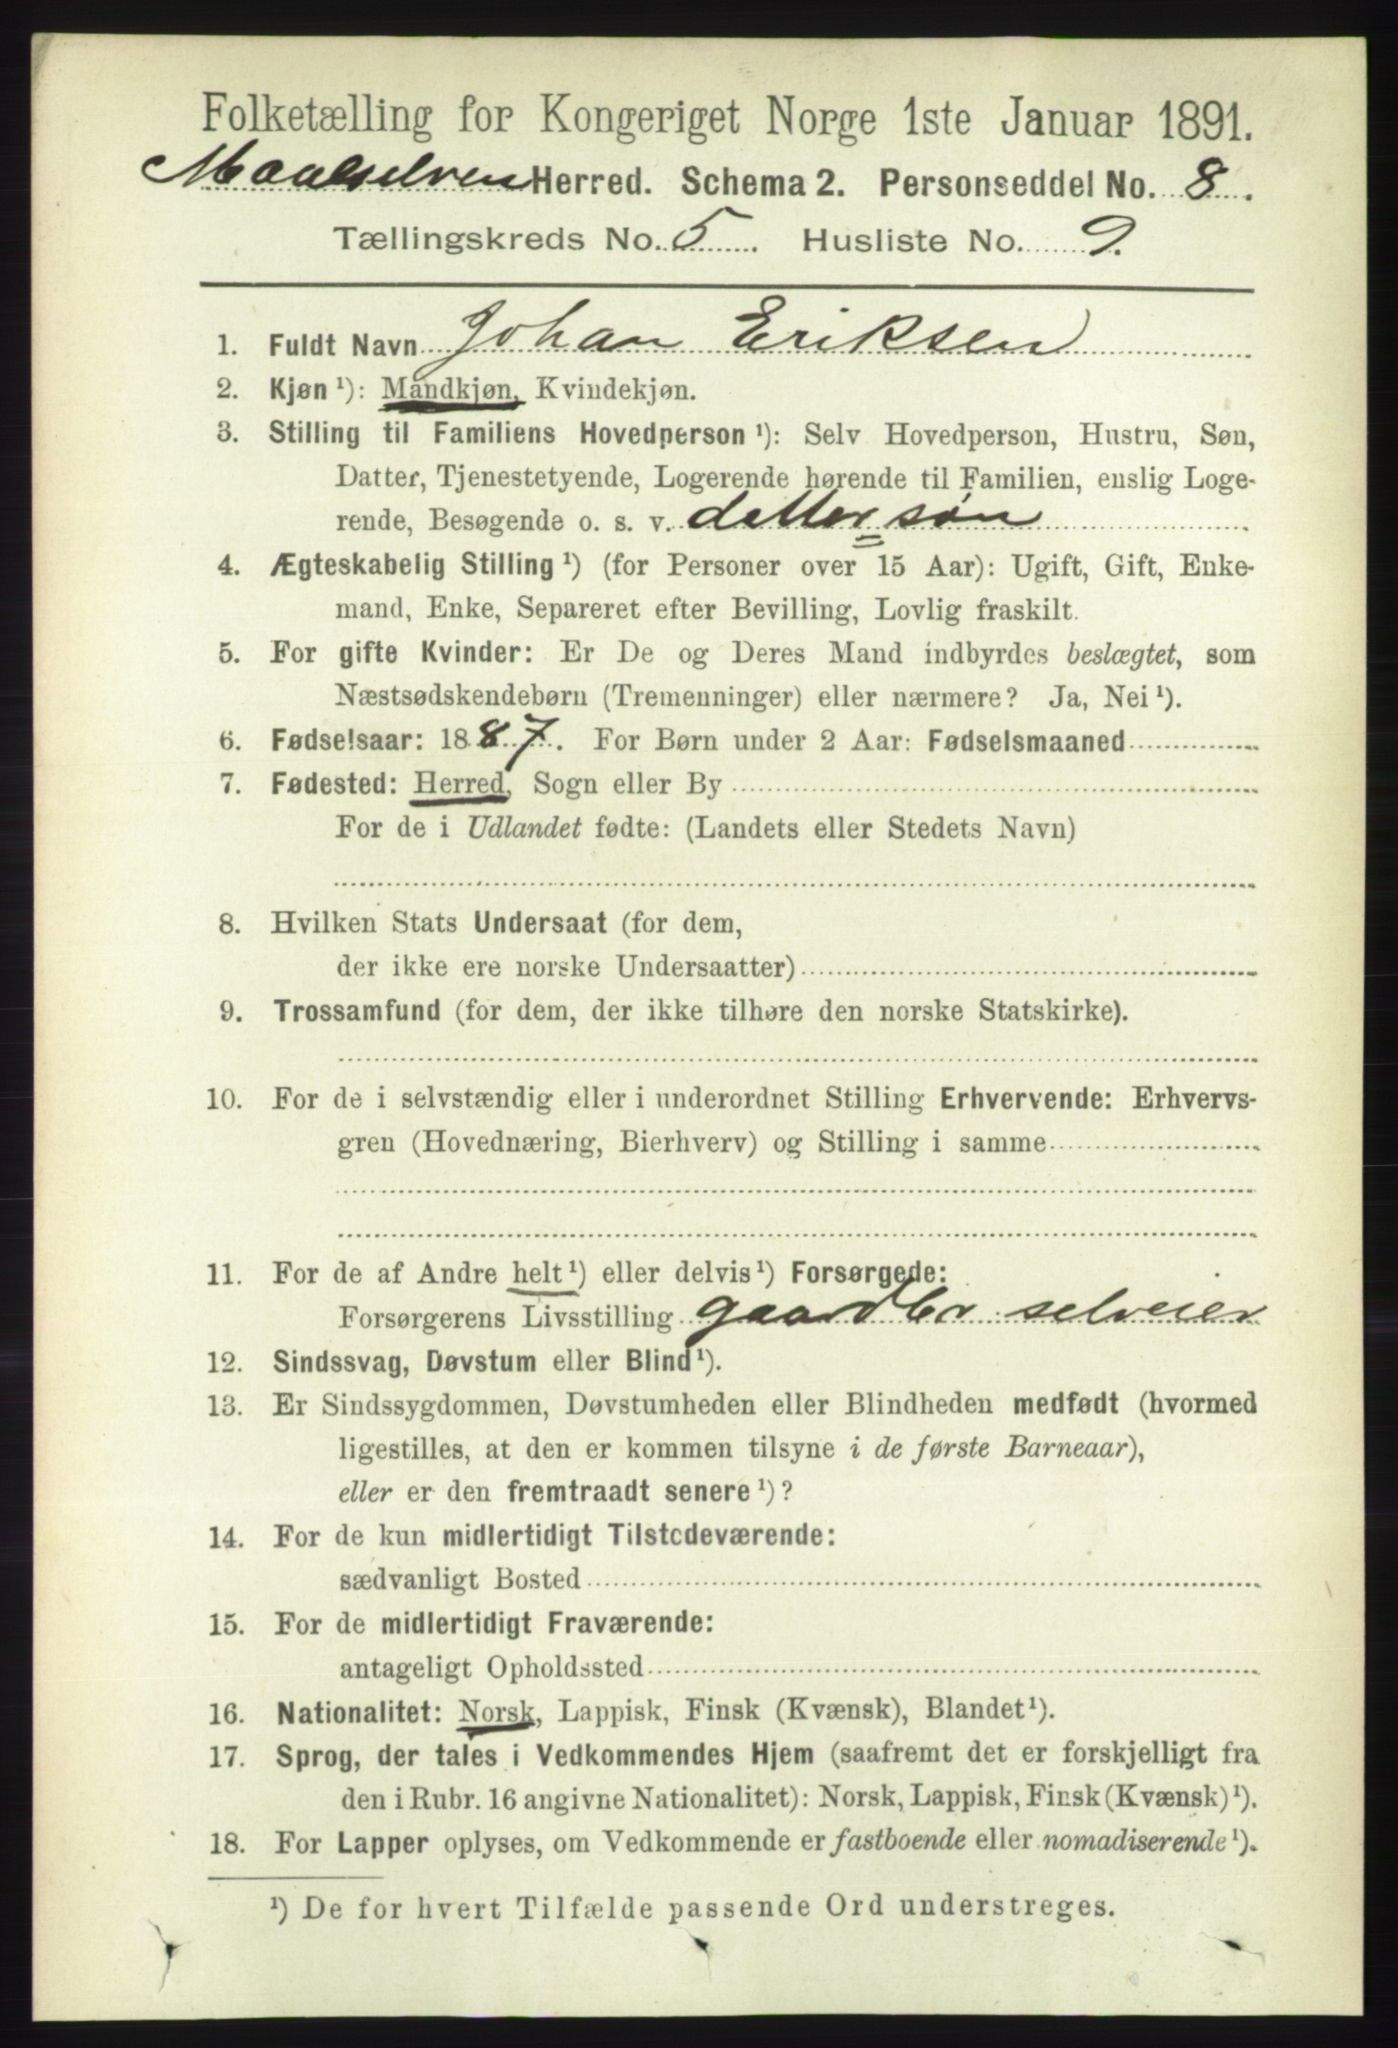 Folketælling for Kongeriget Norge 1ste Januar 1891.
Maalselven Herred. Schema 2. Personseddel No. 8.
Tællingskreds No. 5. Husliste No. 9.
1. Fuldt Navn Johan Eriksen
2. Kjøn ¹): Mandkjøn, Kvindekjøn.
3. Stilling til Familiens Hovedperson ¹): Selv Hovedperson, Hustru, Søn,
Datter, Tjenestetyende, Logerende hørende til Familien, enslig Loge-
rende, Besøgende o. s. v. dattersøn
4. Ægteskabelig Stilling ¹) (for Personer over 15 Aar): Ugift, Gift, Enke-
mand, Enke, Separeret efter Bevilling, Lovlig fraskilt.
5. For gifte Kvinder: Er De og Deres Mand indbyrdes beslægtet, som
Næstsødskendebørn (Tremenninger) eller nærmere? Ja, Nei ¹).
6. Fødselsaar: 1887. For Børn under 2 Aar: Fødselsmaaned
7. Fødested: Herred, Sogn eller By
For de i Udlandet fødte: (Landets eller Stedets Navn)
8. Hvilken Stats Undersaat (for dem,
der ikke ere norske Undersaatter)
9. Trossamfund (for dem, der ikke tilhøre den norske Statskirke).
10. For de i selvstændig eller i underordnet Stilling Erhvervende: Erhvervs-
gren (Hovednæring, Bierhverv) og Stilling i samme
11. For de af Andre helt ¹) eller delvis ¹) Forsørgede:
Forsørgerens Livsstilling gaardbr selveier
12. Sindssvag, Døvstum eller Blind ¹).
13. Er Sindssygdommen, Døvstumheden eller Blindheden medfødt (hvormed
ligestilles, at den er kommen tilsyne i de første Barneaar),
eller er den fremtraadt senere ¹)?
14. For de kun midlertidigt Tilstedeværende:
sædvanligt Bosted
15. For de midlertidigt Fraværende:
antageligt Opholdssted
16. Nationalitet: Norsk, Lappisk, Finsk (Kvænsk), Blandet ¹).
17. Sprog, der tales i Vedkommendes Hjem (saafremt det er forskjelligt fra
den i Rubr. 16 angivne Nationalitet): Norsk, Lappisk, Finsk (Kvænsk) ¹).
18. For Lapper oplyses, om Vedkommende er fastboende eller nomadiserende ¹).
¹) De for hvert Tilfælde passende Ord understreges.